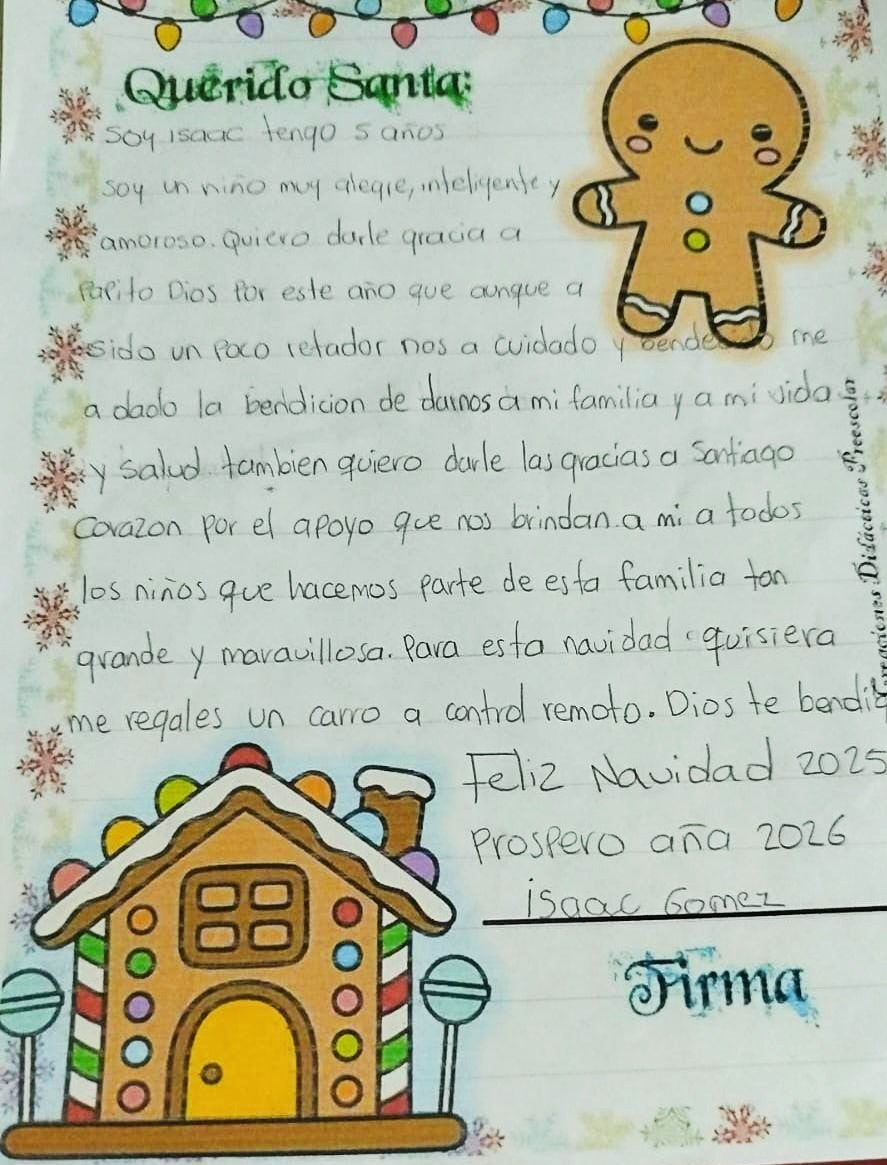 Querido Santa:
Soy isaac tengo 5 años
soy un niño muy alegre, inteligente y
amoroso. Quiero darle gracia a
Papito Dios por este año que aunque a
sido un poco retador nos a cuidado y me
a dado la bendicion de darnos a mi familia y a mi vida
y salud tambien quiero darle las gracias a Santiago
Corazon por el apoyo que nos brindan a mi a todos
los niños que hacemos parte de esta familia tan
grande y maravillosa. Para esta navidad quisiera
me regales un carro a control remoto. Dios te bendig
Feliz Navidad 2025
Prospero aña 2026
isaac Gomez
Firma
Creaciones Didácticas Preescolar